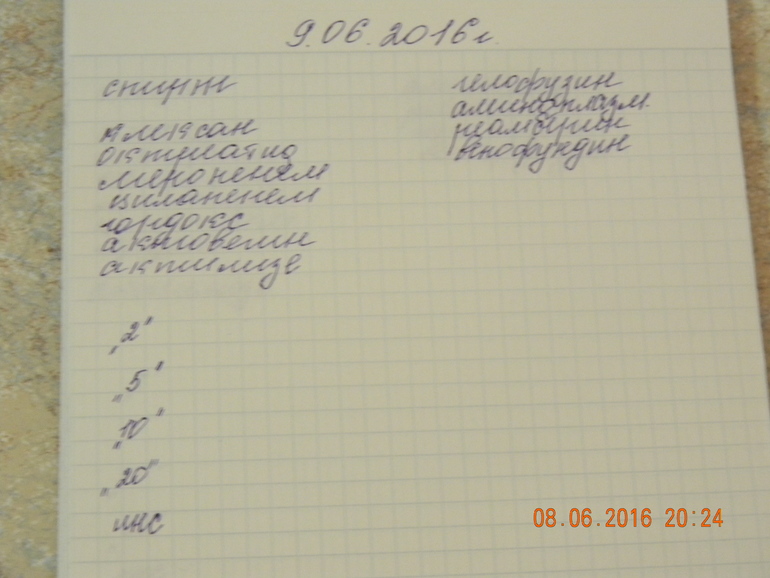 9.06.2016г.
спирт
алексан
октплатид
меропенем
циланенем
гордокс
актовегин
актилизе
„2"
„5"
„10"
„20"
инс
гелофузин
аминоплазм.
реамберин
венофундин
08.06.2016 20:24